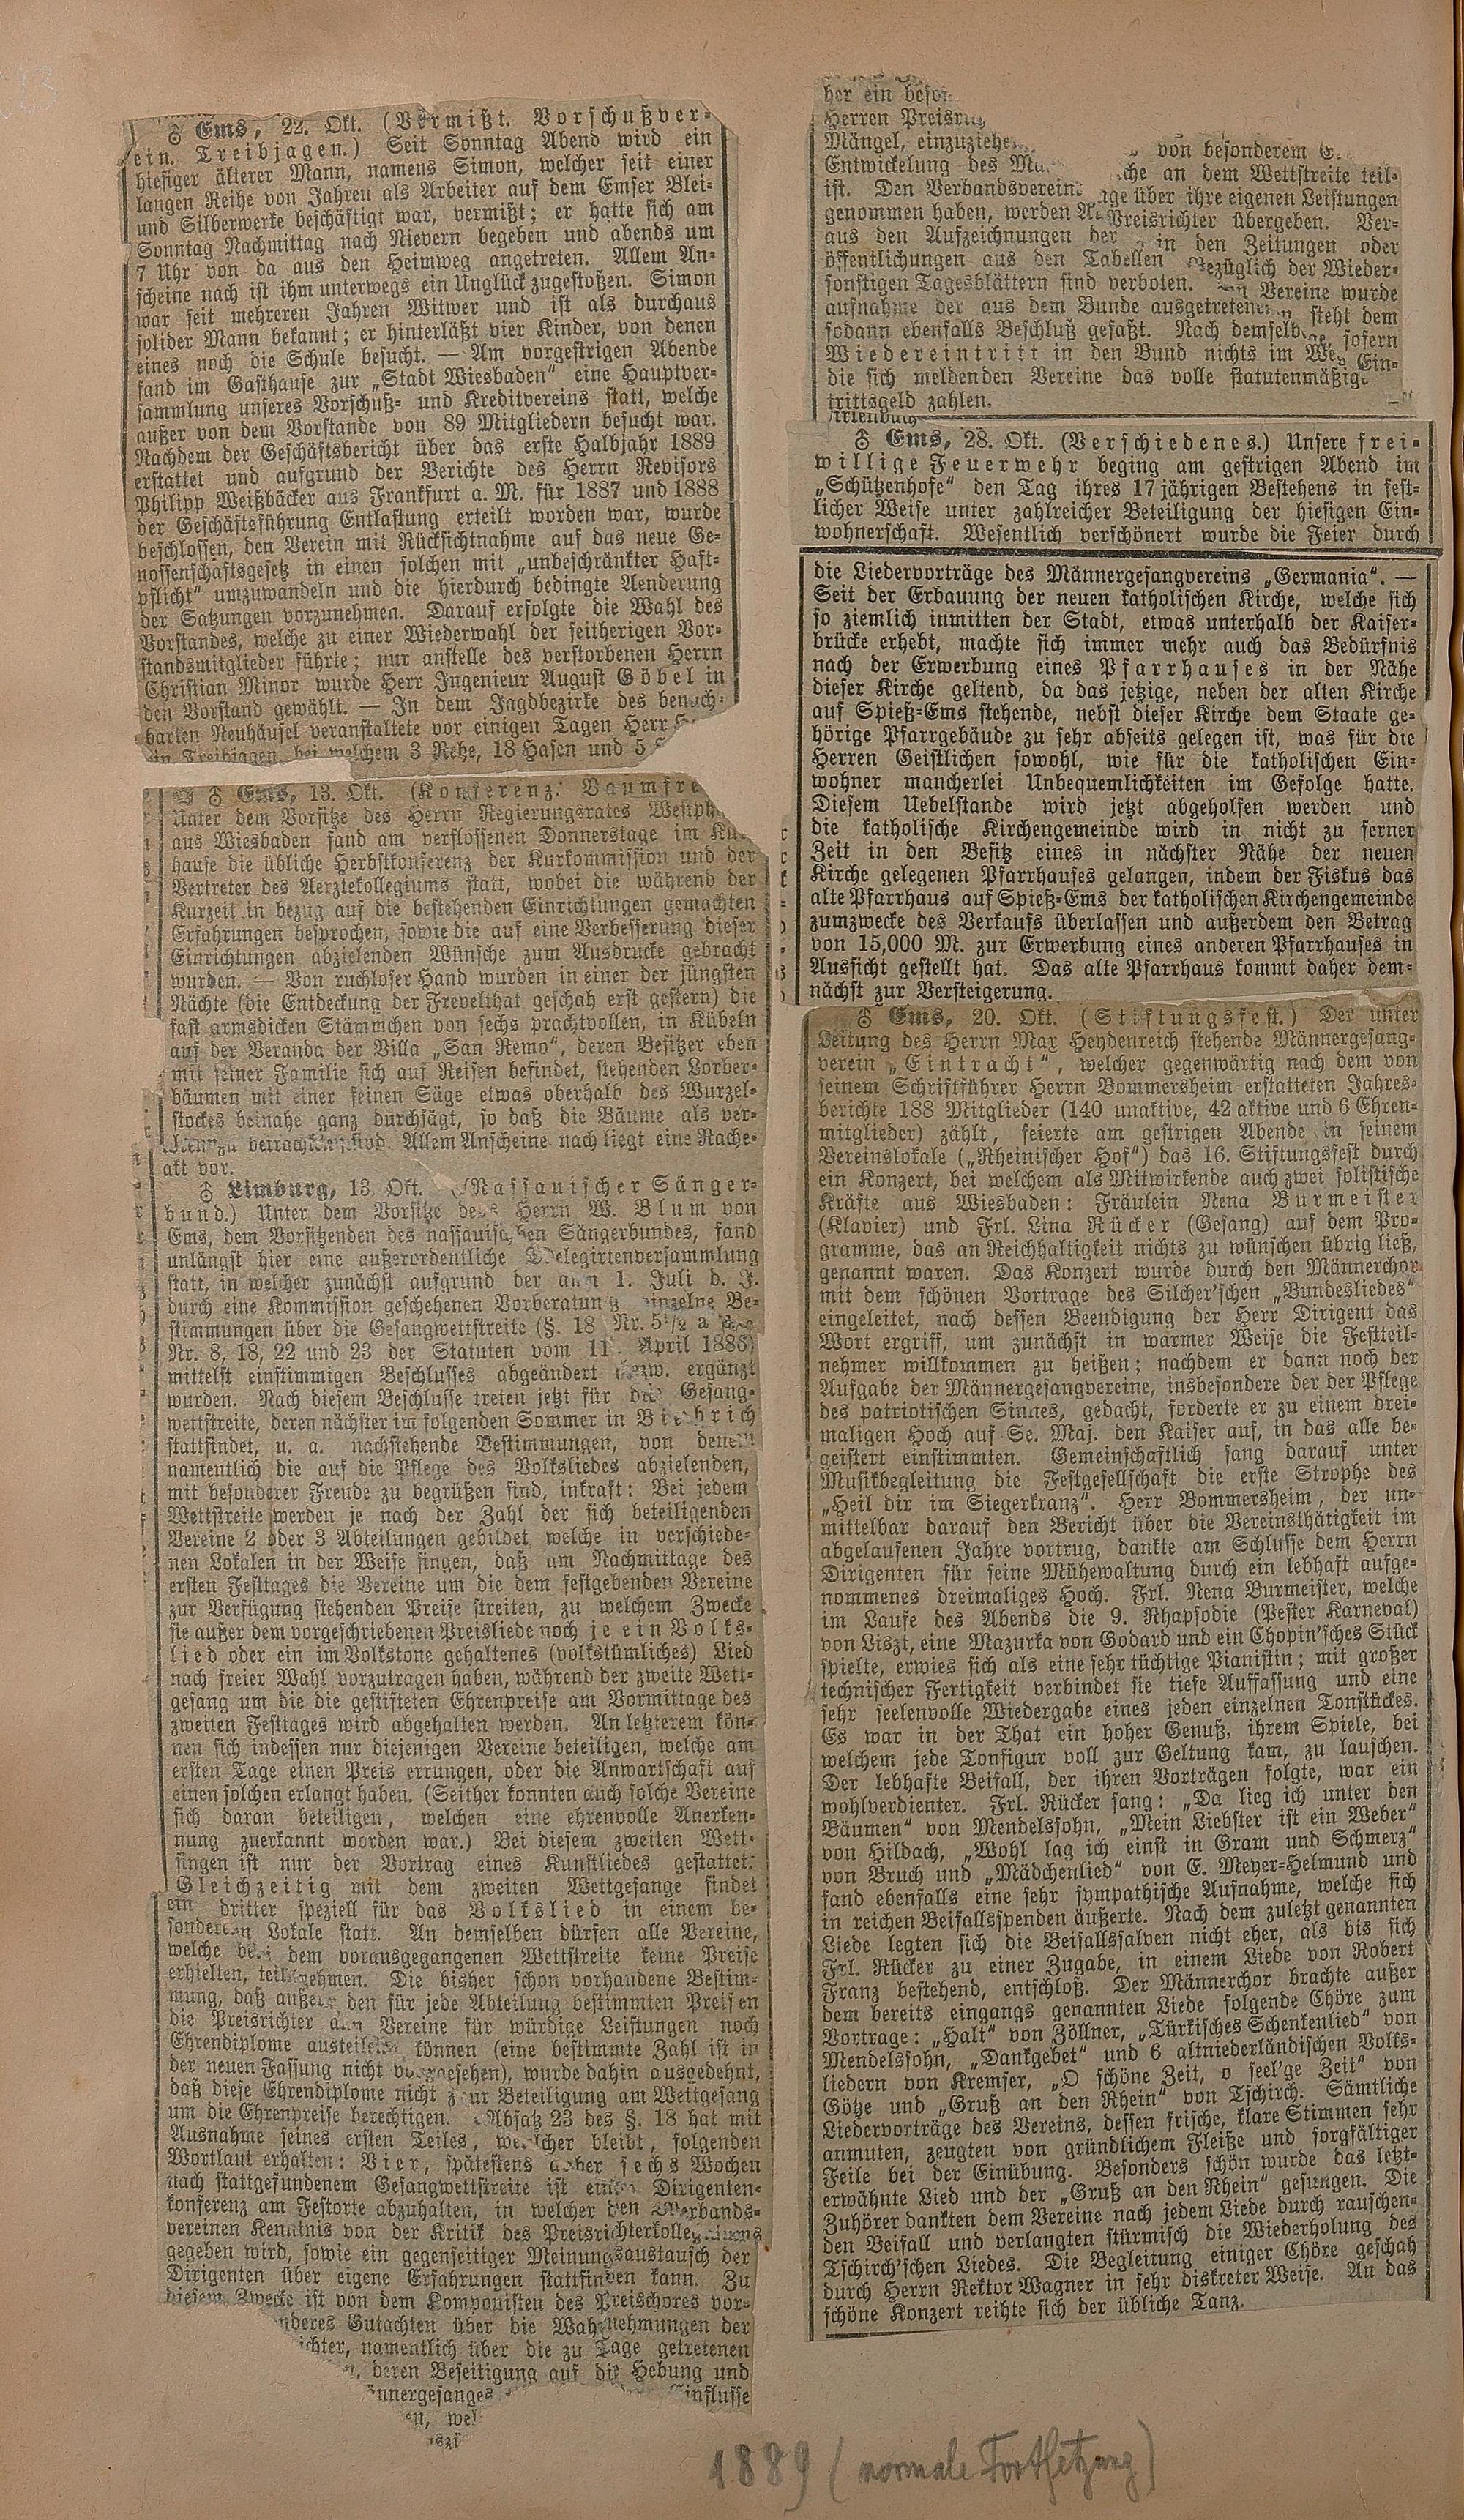 ♁ Ems, 22. Okt. (Vermißt. Vorschußver-
ein. Treibjagen.) Seit Sonntag Abend wird ein
hiesiger älterer Mann, namens Simon, welcher seit einer
langen Reihe von Jahren als Arbeiter auf dem Emser Blei-
und Silberwerke beschäftigt war, vermißt; er hatte sich am
Sonntag Nachmittag nach Nievern begeben und abends um
7 Uhr von da aus den Heimweg angetreten. Allem An-
scheine nach ist ihm unterwegs ein Unglück zugestoßen. Simon
war seit mehreren Jahren Witwer und ist als durchaus
solider Mann bekannt; er hinterläßt vier Kinder, von denen
eines noch die Schule besucht. — Am vorgestrigen Abende
fand im Gasthause zur „Stadt Wiesbaden“ eine Hauptver-
sammlung unseres Vorschuß- und Kreditvereins statt, welche
außer von dem Vorstande von 89 Mitgliedern besucht war.
Nachdem der Geschäftsbericht über das erste Halbjahr 1889
erstattet und aufgrund der Berichte des Herrn Revisors
Philipp Weißbäcker aus Frankfurt a. M. für 1887 und 1888
der Geschäftsführung Entlastung erteilt worden war, wurde
beschlossen, den Verein mit Rücksichtnahme auf das neue Ge-
nossenschaftsgesetz in einen solchen mit „unbeschränkter Haft-
pflicht“ umzuwandeln und die hierdurch bedingte Aenderung
der Satzungen vorzunehmen. Darauf erfolgte die Wahl des
Vorstandes, welche zu einer Wiederwahl der seitherigen Vor-
standsmitglieder führte; nur anstelle des verstorbenen Herrn
Christian Minor wurde Herr Ingenieur August Göbel in
den Vorstand gewählt. — In dem Jagdbezirke des benach-
barten Neuhäusel veranstaltete vor einigen Tagen Herr
ein Treibjagen, bei welchem 3 Rehe, 18 Hasen und 5
♁ Ems, 13. Okt. (Konferenz. Baumfre
Unter dem Vorsitze des Herrn Regierungsrates Westph
aus Wiesbaden fand am verflossenen Donnerstage im Kur-
hause die übliche Herbstkonferenz der Kurkommission und der
Vertreter des Aerztekollegiums statt, wobei die während der
Kurzeit in bezug auf die bestehenden Einrichtungen gemachten
Erfahrungen besprochen, sowie die auf eine Verbesserung dieser
Einrichtungen abzielenden Wünsche zum Ausdrucke gebracht
wurden. — Von ruchloser Hand wurden in einer der jüngsten
Nächte (die Entdeckung der Frevelthat geschah erst gestern) die
fast armsdicken Stämmchen von sechs prachtvollen, in Kübeln
auf der Veranda der Villa „San Remo“, deren Besitzer eben
mit seiner Familie sich auf Reisen befindet, stehenden Lorber-
bäumen mit einer feinen Säge etwas oberhalb des Wurzel-
stockes beinahe ganz durchsägt, so daß die Bäume als ver-
zu betrachten sind. Allem Anscheine nach liegt eine Rache-
akt vor.
♁ Limburg, 13. Okt. (Nassauischer Sänger-
bund.) Unter dem Vorsitze des Herrn W. Blum von
Ems, dem Vorsitzenden des nassauischen Sängerbundes, fand
unlängst hier eine außerordentliche Delegirtenversammlung
statt, in welcher zunächst aufgrund der am 1. Juli d. J.
durch eine Kommission geschehenen Vorberatung einzelne Be-
stimmungen über die Gesangwettstreite (§. 18 Nr. 5½ a
Nr. 8, 18, 22 und 23 der Statuten vom 11. April 1886)
mittelst einstimmigen Beschlusses abgeändert bezw. ergänzt
wurden. Nach diesem Beschlusse treten jetzt für die Gesang-
wettstreite, deren nächster im folgenden Sommer in Biebrich
stattfindet, u. a. nachstehende Bestimmungen, von denen
namentlich die auf die Pflege des Volksliedes abzielenden,
mit besonderer Freude zu begrüßen sind, inkraft: Bei jedem
Wettstreite werden je nach der Zahl der sich beteiligenden
Vereine 2 oder 3 Abteilungen gebildet, welche in verschiede-
nen Lokalen in der Weise singen, daß am Nachmittage des
ersten Festtages die Vereine um die dem festgebenden Vereine
zur Verfügung stehenden Preise streiten, zu welchem Zwecke
sie außer dem vorgeschriebenen Preisliede noch je ein Volks-
lied oder ein im Volkstone gehaltenes (volkstümliches) Lied
nach freier Wahl vorzutragen haben, während der zweite Wett-
gesang um die die gestifteten Ehrenpreise am Vormittage des
zweiten Festtages wird abgehalten werden. An letzterem kön-
nen sich indessen nur diejenigen Vereine beteiligen, welche am
ersten Tage einen Preis errungen, oder die Anwartschaft auf
einen solchen erlangt haben. (Seither konnten auch solche Vereine
sich daran beteiligen, welchen eine ehrenvolle Anerken-
nung zuerkannt worden war.) Bei diesem zweiten Wett-
singen ist nur der Vortrag eines Kunstliedes gestattet.
Gleichzeitig mit dem zweiten Wettgesange findet
ein dritter speziell für das Volkslied in einem be-
sonderen Lokale statt. An demselben dürfen alle Vereine,
welche bei dem vorausgegangenen Wettstreite keine Preise
erhielten, teilnehmen. Die bisher schon vorhandene Bestim-
mung, daß außer den für jede Abteilung bestimmten Preisen
die Preisrichter an Vereine für würdige Leistungen noch
Ehrendiplome austeilen können (eine bestimmte Zahl ist in
der neuen Fassung nicht vorgesehen), wurde dahin ausgedehnt,
daß diese Ehrendiplome nicht zur Beteiligung am Wettgesang
um die Ehrenpreise berechtigen. Absatz 23 des §. 18 hat mit
Ausnahme seines ersten Teiles, welcher bleibt, folgenden
Wortlaut erhalten: Vier, spätestens aber sechs Wochen
nach stattgefundenem Gesangwettstreite ist eine Dirigenten-
konferenz am Festorte abzuhalten, in welcher den Verbands-
vereinen Kenntnis von der Kritik des Preisrichterkollegiums
gegeben wird, sowie ein gegenseitiger Meinungsaustausch der
Dirigenten über eigene Erfahrungen stattfinden kann. Zu
diesem Zwecke ist von dem Komponisten des Preischores vor-
nderes Gutachten über die Wahrnehmungen der
ichter, namentlich über die zu Tage getretenen
, deren Beseitigung auf die Hebung und
nnergesanges influsse
en, wel
her ein beson
Herren Preisri
Mängel, einzuziehe
Entwickelung des Mä von besonderem E
ist. Den Verbandsvereinen, welche an dem Wettstreite teil-
genommen haben, werden Auszüge über ihre eigenen Leistungen
aus den Aufzeichnungen der Preisrichter übergeben. Ver-
öffentlichungen aus den Tabellen in den Zeitungen oder
sonstigen Tagesblättern sind verboten. Bezüglich der Wieder-
aufnahme der aus dem Bunde ausgetretenen Vereine wurde
sodann ebenfalls Beschluß gefaßt. Nach demselben steht dem
Wiedereintritt in den Bund nichts im Wege, sofern
die sich meldenden Vereine das volle statutenmäßige Ein-
trittsgeld zahlen.
♁ Ems, 28. Okt. (Verschiedenes.) Unsere frei-
willige Feuerwehr beging am gestrigen Abend im
„Schützenhofe“ den Tag ihres 17jährigen Bestehens in fest-
licher Weise unter zahlreicher Beteiligung der hiesigen Ein-
wohnerschaft. Wesentlich verschönert wurde die Feier durch
die Liedervorträge des Männergesangvereins „Germania“. —
Seit der Erbauung der neuen katholischen Kirche, welche sich
so ziemlich inmitten der Stadt, etwas unterhalb der Kaiser-
brücke erhebt, machte sich immer mehr auch das Bedürfnis
nach der Erwerbung eines Pfarrhauses in der Nähe
dieser Kirche geltend, da das jetzige, neben der alten Kirche
auf Spieß-Ems stehende, nebst dieser Kirche dem Staate ge-
hörige Pfarrgebäude zu sehr abseits gelegen ist, was für die
Herren Geistlichen sowohl, wie für die katholischen Ein-
wohner mancherlei Unbequemlichkeiten im Gefolge hatte.
Diesem Uebelstande wird jetzt abgeholfen werden und
die katholische Kirchengemeinde wird in nicht zu ferner
Zeit in den Besitz eines in nächster Nähe der neuen
Kirche gelegenen Pfarrhauses gelangen, indem der Fiskus das
alte Pfarrhaus auf Spieß-Ems der katholischen Kirchengemeinde
zumzwecke des Verkaufs überlassen und außerdem den Betrag
von 15,000 M. zur Erwerbung eines anderen Pfarrhauses in
Aussicht gestellt hat. Das alte Pfarrhaus kommt daher dem-
nächst zur Versteigerung.
♁ Ems, 20. Okt. (Stiftungsfest.) Der unter
Leitung des Herrn Max Heydenreich stehende Männergesang-
verein „Eintracht“, welcher gegenwärtig nach dem von
seinem Schriftführer Herrn Bommersheim erstatteten Jahres-
berichte 188 Mitglieder (140 unaktive, 42 aktive und 6 Ehren-
mitglieder) zählt, feierte am gestrigen Abende in seinem
Vereinslokale („Rheinischer Hof“) das 16. Stiftungsfest durch
ein Konzert, bei welchem als Mitwirkende auch zwei solistische
Kräfte aus Wiesbaden: Fräulein Nena Burmeister
(Klavier) und Frl. Lina Rücker (Gesang) auf dem Pro-
gramme, das an Reichhaltigkeit nichts zu wünschen übrig ließ,
genannt waren. Das Konzert wurde durch den Männerchor
mit dem schönen Vortrage des Silcher'schen „Bundesliedes“
eingeleitet, nach dessen Beendigung der Herr Dirigent das
Wort ergriff, um zunächst in warmer Weise die Festteil-
nehmer willkommen zu heißen; nachdem er dann noch der
Aufgabe der Männergesangvereine, insbesondere der der Pflege
des patriotischen Sinnes, gedacht, forderte er zu einem drei-
maligen Hoch auf Se. Maj. den Kaiser auf, in das alle be-
geistert einstimmten. Gemeinschaftlich sang darauf unter
Musikbegleitung die Festgesellschaft die erste Strophe des
„Heil dir im Siegerkranz“. Herr Bommersheim, der un-
mittelbar darauf den Bericht über die Vereinsthätigkeit im
abgelaufenen Jahre vortrug, dankte am Schlusse dem Herrn
Dirigenten für seine Mühewaltung durch ein lebhaft aufge-
nommenes dreimaliges Hoch. Frl. Nena Burmeister, welche
im Laufe des Abends die 9. Rhapsodie (Pester Karneval)
von Liszt, eine Mazurka von Godard und ein Chopin'sches Stück
spielte, erwies sich als eine sehr tüchtige Pianistin; mit großer
technischer Fertigkeit verbindet sie tiefe Auffassung und eine
sehr seelenvolle Wiedergabe eines jeden einzelnen Tonstückes.
Es war in der That ein hoher Genuß, ihrem Spiele, bei
welchem jede Tonfigur voll zur Geltung kam, zu lauschen.
Der lebhafte Beifall, der ihren Vorträgen folgte, war ein
wohlverdienter. Frl. Rücker sang: „Da lieg ich unter den
Bäumen“ von Mendelssohn, „Mein Liebster ist ein Weber“
von Hildach, „Wohl lag ich einst in Gram und Schmerz“
von Bruch und „Mädchenlied“ von E. Meyer-Helmund und
fand ebenfalls eine sehr sympathische Aufnahme, welche sich
in reichen Beifallsspenden äußerte. Nach dem zuletzt genannten
Liede legten sich die Beifallssalven nicht eher, als bis sich
Frl. Rücker zu einer Zugabe, in einem Liede von Robert
Franz bestehend, entschloß. Der Männerchor brachte außer
dem bereits eingangs genannten Liede folgende Chöre zum
Vortrage: „Halt“ von Zöllner, „Türkisches Schenkenlied“ von
Mendelssohn, „Dankgebet“ und 6 altniederländischen Volks-
liedern von Kremser, „O schöne Zeit, o seel'ge Zeit“ von
Götze und „Gruß an den Rhein“ von Tschirch. Sämtliche
Liedervorträge des Vereins, dessen frische, klare Stimmen sehr
anmuten, zeugten von gründlichem Fleiße und sorgfältiger
Feile bei der Einübung. Besonders schön wurde das letzt-
erwähnte Lied und der „Gruß an den Rhein“ gesungen. Die
Zuhörer dankten dem Vereine nach jedem Liede durch rauschen-
den Beifall und verlangten stürmisch die Wiederholung des
Tschirch'schen Liedes. Die Begleitung einiger Chöre geschah
durch Herrn Rektor Wagner in sehr diskreter Weise. An das
schöne Konzert reihte sich der übliche Tanz.
1889 (normale Fortsetzung)